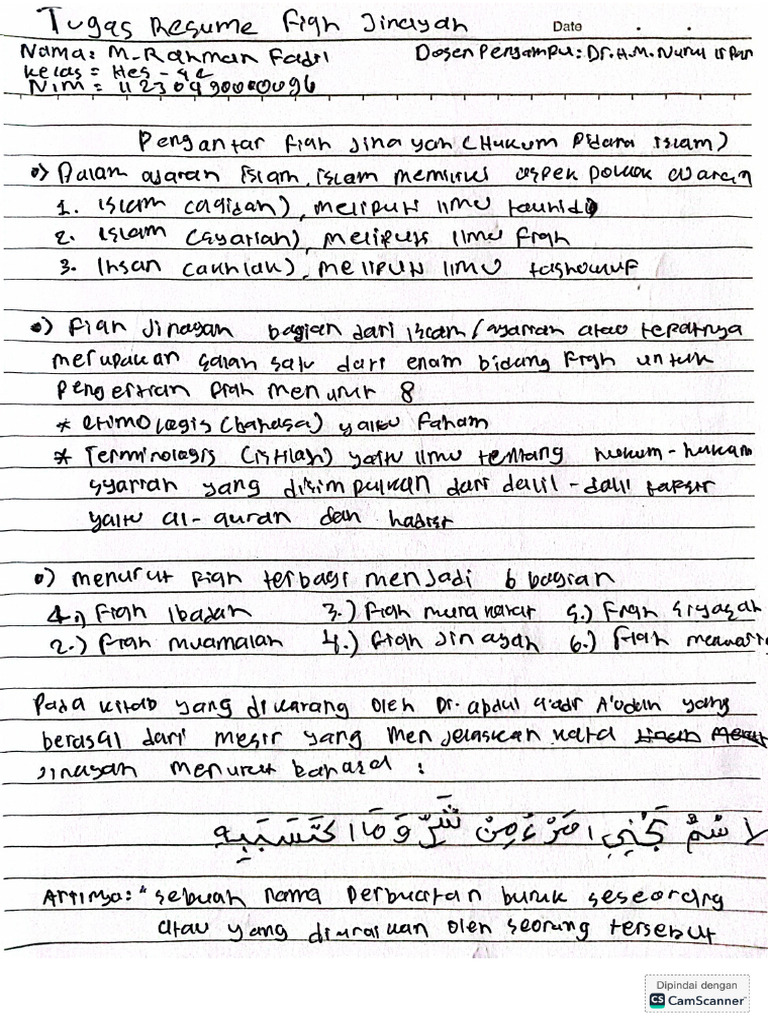 Tugas Resume Fiqh Jinayah Date . . .
Nama: M. Rahman Fadil Dosen Pengampu: Dr. H. M. Nurul Irfan
Kelas = Hes - 4C
NIM = 11230490000096
Pengantar fiqh Jinayah (Hukum Pidana Islam)
•) Dalam ajaran islam, islam memiliki aspek pokok
1. Islam (aqidah), meliputi ilmu tauhid
2. Islam (syariah), meliputi ilmu fiqh
3. Ihsan (akhlak), meliputi ilmu tashowuf
•) Fiqh Jinayah bagian dari islam / syariah atau tepatnya
merupakan salah satu dari enam bidang fiqh untuk
pengertian fiqh menurut 8
* etimologis (bahasa) yaitu Faham
* Terminologis (istilah) yaitu ilmu tentang hukum-hukum
syariah yang disimpulkan dari dalil-dalil
yaitu al-quran dan hadist
•) menurut fiqh terbagi menjadi 6 bagian
1.) Fiqh Ibadah 3.) Fiqh munakahat 5.) Fiqh siyasah
2.) Fiqh muamalah 4.) Fiqh Jinayah 6.) Fiqh
Pada kitab yang dikarang oleh Dr. abdul qadir A'udah yang
berasal dari mesir yang menjelaskan kata
Jinayah menurut bahasa :
لاسْمُ يَجْنِي امَرْءُ مِنْ شَرٍّ وَمَا اكْتَسَبَهِ
Artinya: "sebuah nama perbuatan buruk seseorang
atau yang diuraikan oleh seorang tersebut
Dipindai dengan
CS CamScanner